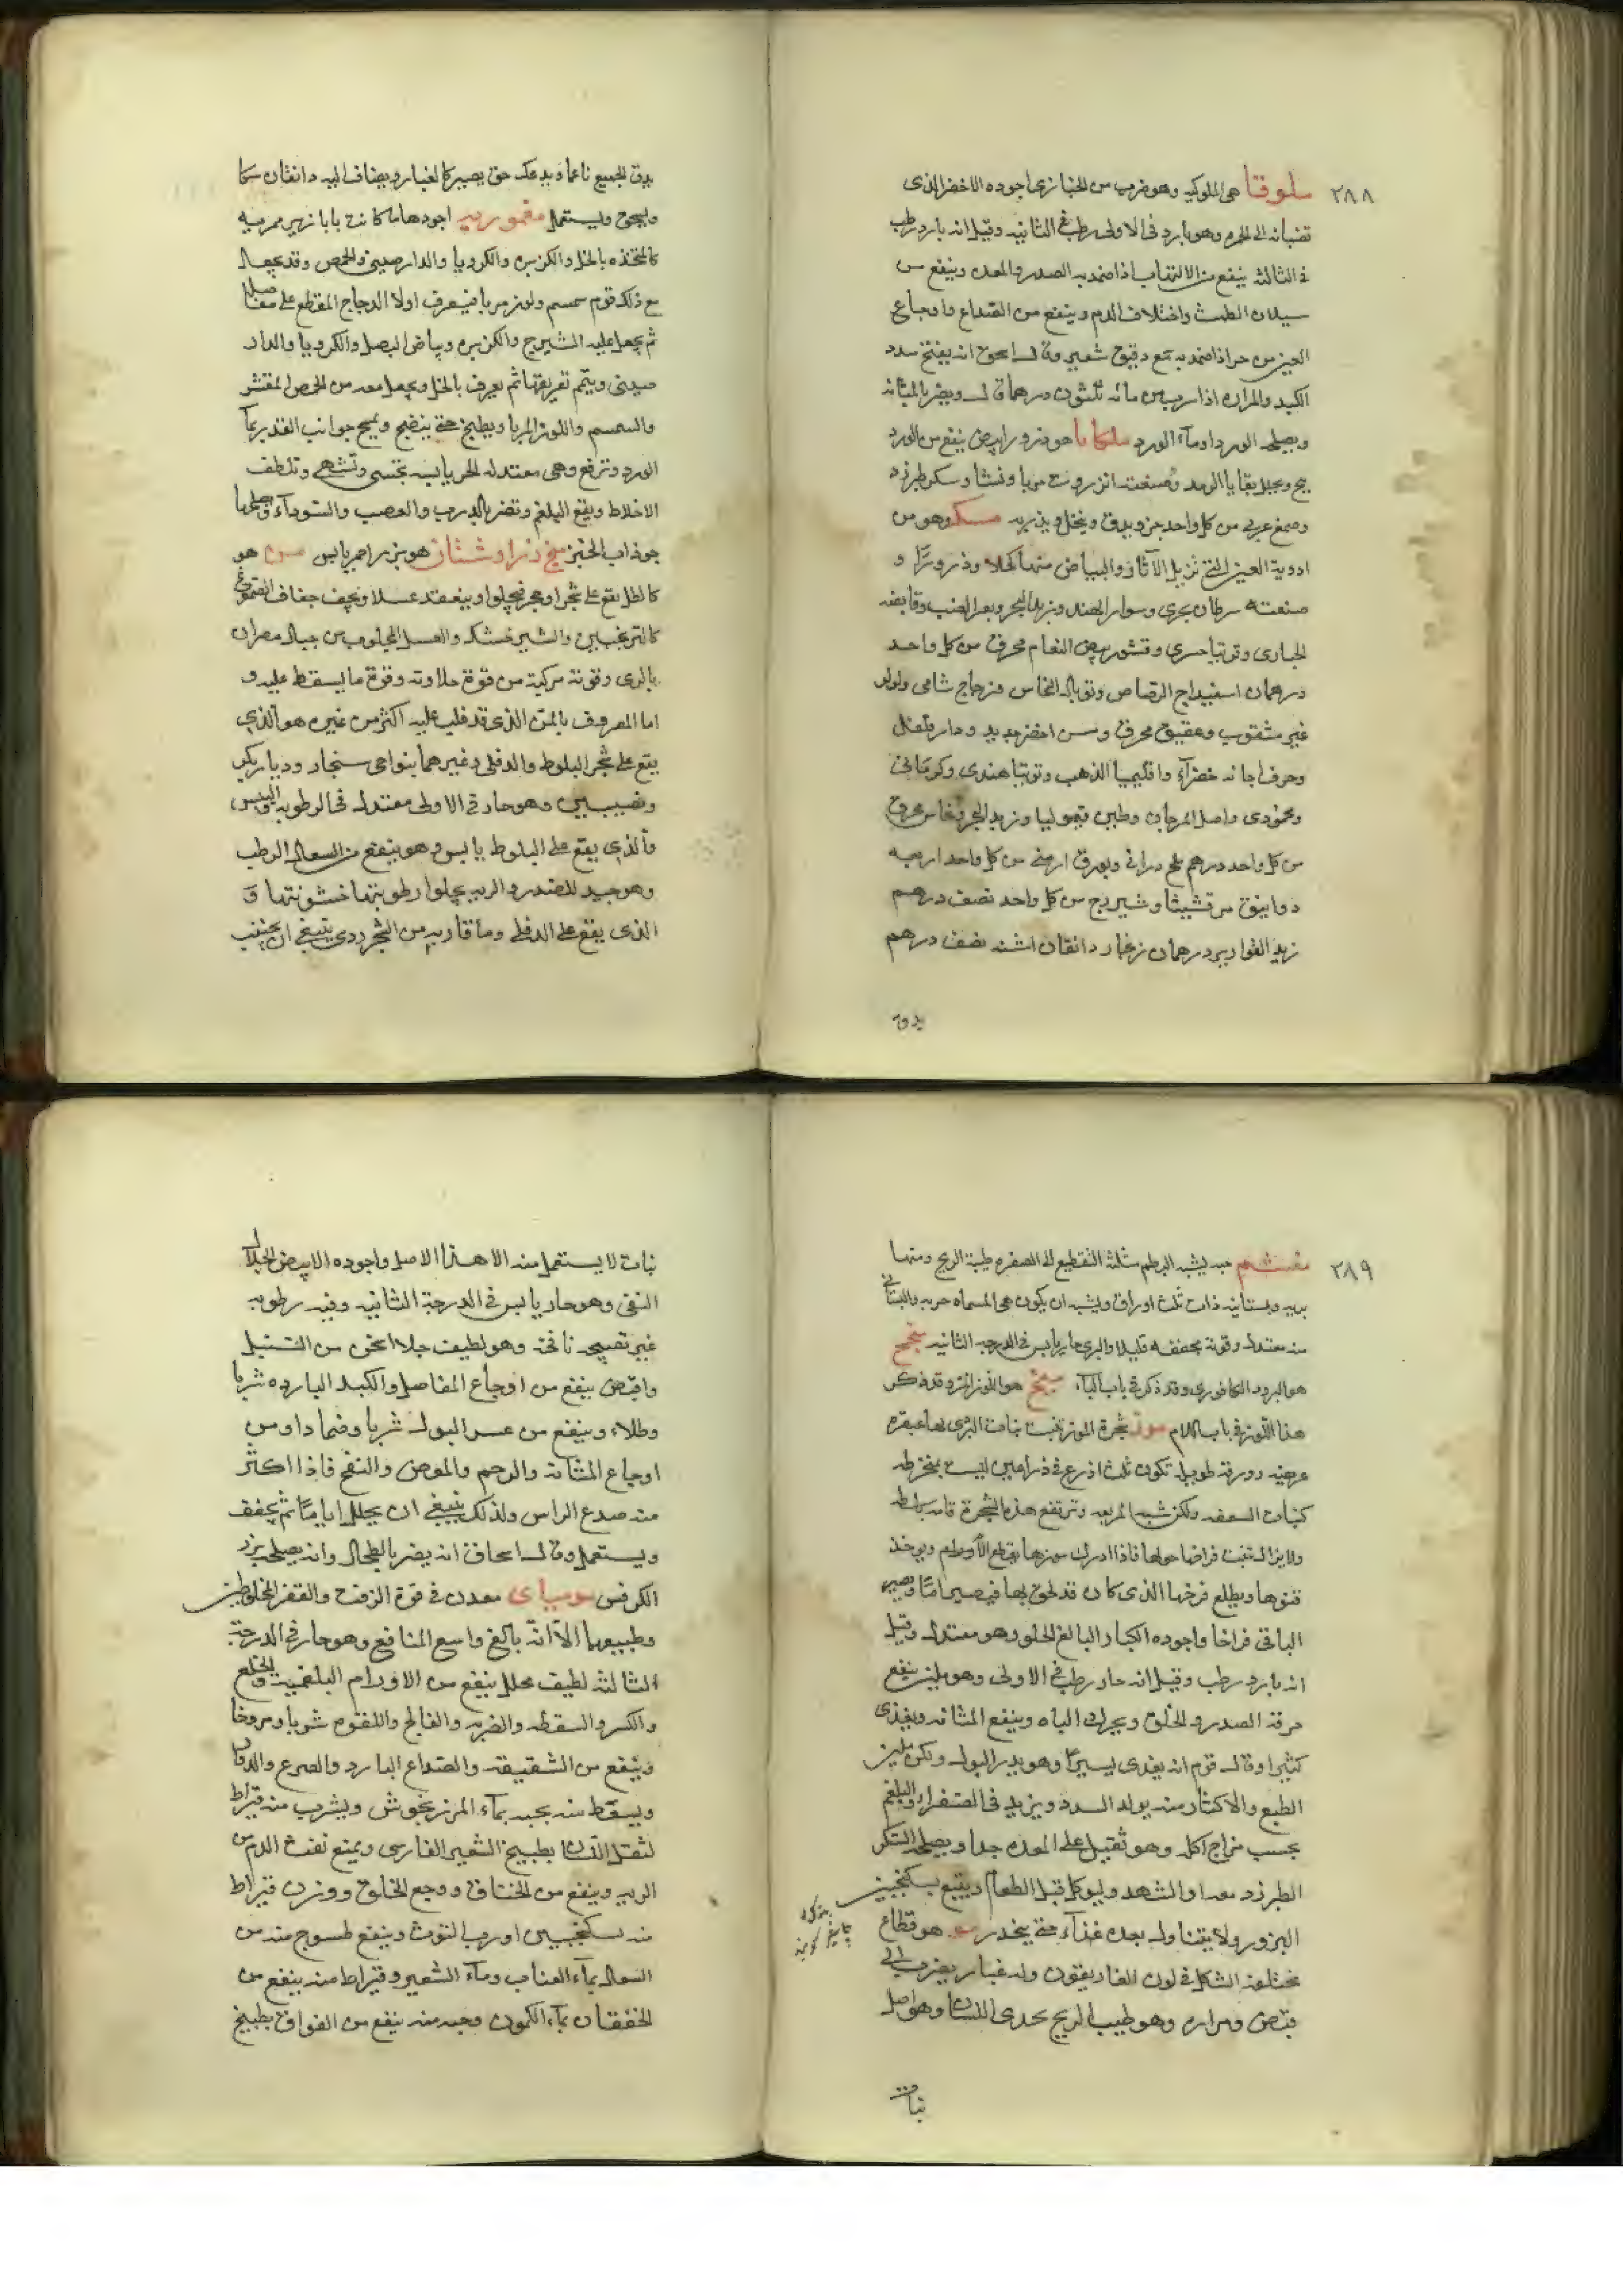 ٢٨٨
ملوقيا هى الملوكيه وهو ضرب من الخبازى اجوده الاخضر الذى
قضبانه الى الحمره وهو بارد فى الاولى رطب فى الثانيه وقيل انه بارد رطب
فى الثالثه ينفع من الالتهاب اذا ضمد به الصدر والمعده وينفع من
سيلان الطمث واختلاف الدم وينفع من الصداع واوجاع
العين من حر اذا ضمد به مع دقيق شعير وقال اسحق انه يفتح سدد
الكبد والمراره اذا شرب من مائه ثلثون درهما قال ويضر بالمثانه
ويصلحه الورد او مآء الورد ملكايا هو ذرور ابيض ينفع من الورد
ينج ويجلل بقايا الرمد وصنعته انزروت مربا ونشا وسكر طبرزد
وصمغ عربى من كل واحد جزو يدق وينخل ويذر به وهو من
ادوية العين التى تزيل الآثار والبياض منها كحلا وذرورًا و
صنعته سرطان بحرى وسوار الهند وزبد البحر وبعر الضب وقانصه
الحبارى وتوتيا حسرى وقشور بيض النعام محرق من كل واحد
درهمان اسفيداج الرصاص وتوبال النحاس وزجاج شامى ولولو
غير مثقوب وعقيق محرق ومسن اخضر جديد ودار فلفل
وخرف اجانه خضرآء واقليميا الذهب وتوتيا هندى وكرمانى
ومحمودى واصل المرجان وطين قيموليا وزبد البحر نحاس محرق
من كل واحد درهم ملح درانى وبورق ارمنى من كل واحد اربعه
دوانيق مرقشيثا وشيزرج من كل واحد نصف درهم
زبد القوارير درهمان زنجار دانقان اشنه نصف درهم
يدق
يدق الجميع ناعما ويدعك حتى يصير كالغبار ويضاف اليه دانقان مسكا
ويسحق ويستعمل مقموريه اجودها ما كانت بابازير مريه
كالمتخذه بالخل والكزبره والكرويا والدارصينى والحمص وقد يجعل
مع ذلك قوم سمسم ولوز مربا فيعرق اولا الدجاج المقطع على مفاصله
ثم يجعل عليه الشيرج والكزبره وبياض البصل والكرويا والدار
صينى ويتم تعريقها ثم يعرق بالخل ويجعل معه من الحمص المقشر
والسمسم واللوز المربا ويطبخ حتى ينضج ويمسح جوانب القدر بمآ
الورد وترفع وهى معتدله الحر يابسه تجشى وتشهى وتلطف
الاخلاط ويقمع البلغم وتضر بالذرب والعصب والسودآء ويصلحها
جوذاب الخبز منخ ذراوشنان هو بزر احمر يابس من هو
كالطل يقع على شجر او حجر فيحلوا وينعقد عسلا ويجف جفاف الصموغ
كالترنجبين والشيرخشك والعسل المجلوب من جبال مصران
بالرى وقوته مركبة من قوة حلاوته وقوة ما يسقط عليه و
اما المعروف بالمنّ الذى قد غلب عليه اكثر من غيره هو الذى
يقع على شجر البلوط والدفلى وغيرهما بنواحى سنجار وديار بكر
ونصيبين وهو حار فى الاولى معتدل فى الرطوبه واليبس
والذى يقع على البلوط يابس وهو ينفع من السعال الرطب
وهو جيد للصدر والريه يجلوا رطوبتها خشونتها و
الذى يقع على الدفلى وما قاربه من الشجر ردى ينبغى ان يجتنب
٢٨٩
منشم حبه يشبه البطم مثلثة التقطيع الى الصفره طيبة الريح ومنها
بريه وبستانيه ذات ثلث اوراق ويشبه ان يكون هى المسماه حربه والبستانى
منه معتدل وقوته مجففه قليلا والبرى حار يابس فى الدرجه الثانيه
هو البرود الكافورى وقد ذكر فى باب البآء هو اللوز المر وقد ذكر
هذا اللوز فى باب اللام موز شجرة الموز تنبت نبات البردى لها عبقره
عريضه وورقه طويله تكون ثلث اذرع فى ذراعين ليست بمنخرطه
كنبات السعفه ولكن شبه المربعه وترتفع هذه الشجرة قامه باسطه
ولا يزال تنبت فراخا حولها فاذا ادرك موزها يقطع الام ويوخذ
قنوها ويطلع فرخها الذى كان قد لحق بها فيصير امّا ويصير
الباقى فراخا واجوده الكبار البالغ الحلو وهو معتدل وقيل
انه بارد رطب وقيل انه حار رطب فى الاولى وهو ملين ينفع
حرقة الصدر والحلق ويحرك الباه وينفع المثانه ويغذى
كثيرا وقال قوم انه يغذى يسيرا وهو يدر البول ولكن ملين
الطبع والاكثار منه يولد السدد ويزيد فى الصفرا والبلغم
بحسب مزاج اكله وهو ثقيل على المعده جدا ويصلحه السكر
الطبرزد معه او الشهد وليوكل قبل الطعام ويتبع بسكنجبين
البزور ولا يتناول بعده غذآء حتى ينحدر مو هو قطاع
مختلفة الشكل فى لون الغاريقون وله غبار يضرب الى
قبض ومراره وهو طيب الريح يحدى اللسان وهو اصل
نبات
نبات لا يستعمل منه الا هذا الاصل واجوده الابيض الجلال
النقى وهو حار يابس فى الدرجة الثانيه وفيه رطوبه
غير نضيجه نافخه وهو لطيف جلا اسخن من السنبل
واقبض ينفع من اوجاع المفاصل والكبد البارده شربا
وطلاء وينفع من عسر البول شربا وضمادا ومن
اوجاع المثانه والرحم والمغص والنفخ فاذا اكثر
منه صدع الراس ولذلك ينبغى ان يجلل اياما ثم يجفف
ويستعمل وقال اسحاق انه يضر بالطحال وانه يصلحه بزر
الكرفس مومياى معدن فى قوة الزفت والقفر المخلوطين
وطبيعهما الا انه بالغ واسع المنافع وهو حار فى الدرجة
الثالثه لطيف محلل ينفع من الاورام البلغميه والخلع
والكسر والسقطه والضربه والفالج واللقوه شربا ومروخا
وينفع من الشقيقه والصداع البارد والصرع والدوار
ويسقط منه بحبه بمآء المرزنجوش ويشرب منه قيراط
لثقل اللسان بطبيخ الشعير الفارسى ويمنع نفث الدم من
الريه وينفع من الخناق ووجع الحلق ووزن قيراط
منه بسكنجبين او رب التوث وينفع طسوج منه من
السعال بمآء العناب ومآء الشعير وقيراط منه ينفع من
الخفقان بمآء الكمون وحبه منه ينفع من الفواق بطبيخ